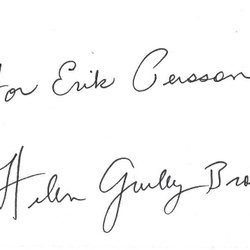 for Erik Persson
Helen Gurley Bro